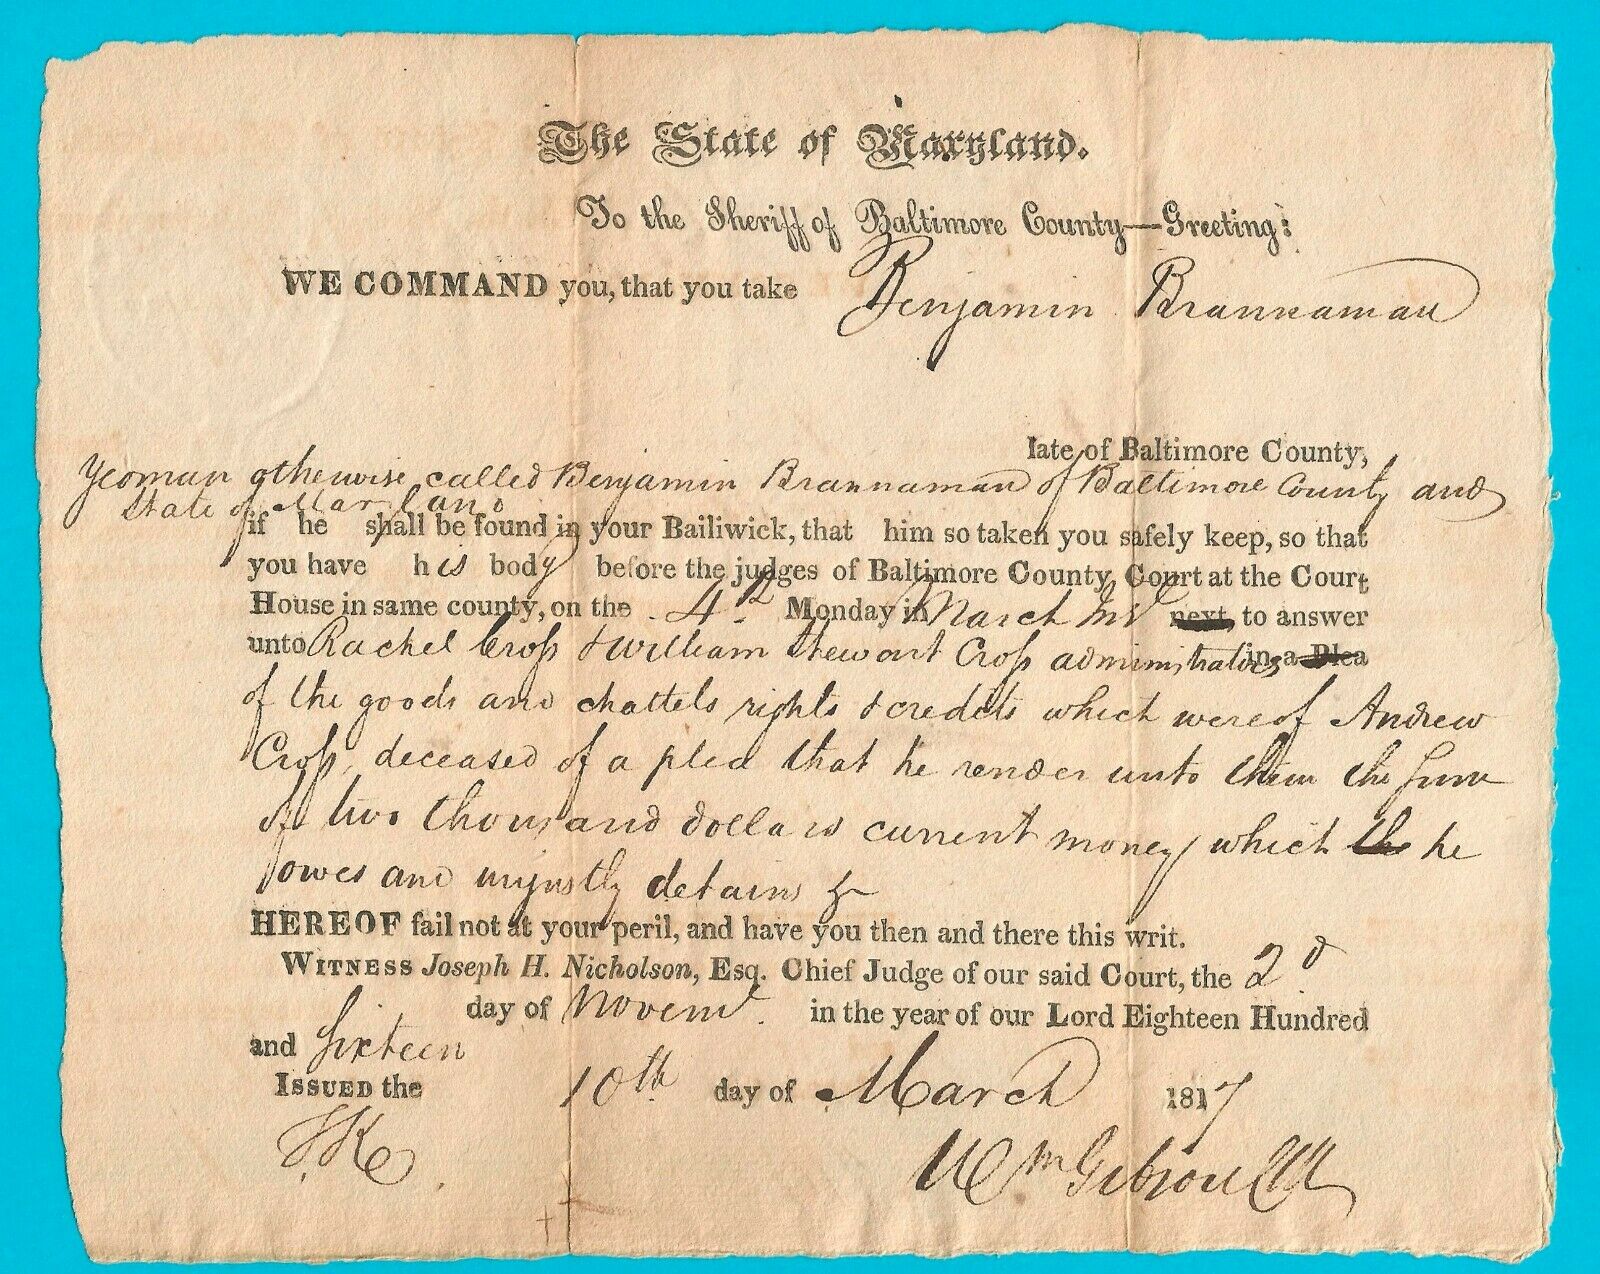 The State of Maryland.
To the Sheriff of Baltimore County—Greeting:
WE COMMAND you, that you take Benjamin Brannaman
late of Baltimore County,
Yeoman otherwise called Benjamin Brannaman of Baltimore County and
State of Maryland
if he shall be found in your Bailiwick, that him so taken you safely keep, so that
you have his body before the judges of Baltimore County Court at the Court
House in same county, on the 4th Monday in March Inst next, to answer
unto Rachel Cross & William Stewart Cross administrators in a Plea
of the goods and chattels rights & credits which were of Andrew
Cross, deceased of a plea that he render unto them the sum
of two thousand dollars current money which the he
owes and unjustly detains &c
HEREOF fail not at your peril, and have you then and there this writ.
WITNESS Joseph H. Nicholson, Esq. Chief Judge of our said Court, the 2d.
day of Novemr. in the year of our Lord Eighteen Hundred
and sixteen
ISSUED the 10th day of March 1817
Wm Gibson Clk